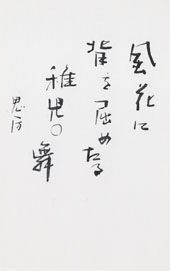 風花に
背を屈めたる
稚児の舞